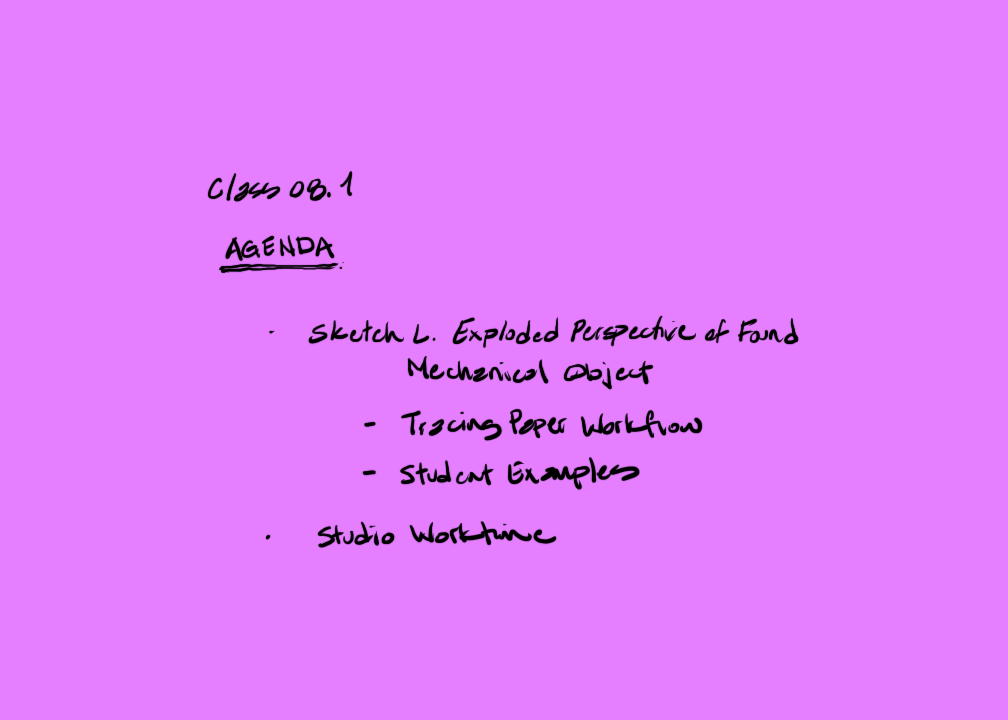 Class 08.1
AGENDA
· Sketch L. Exploded Perspective of Found
Mechanical Object
- Tracing Paper Workflow
- Student Examples
· Studio Worktime